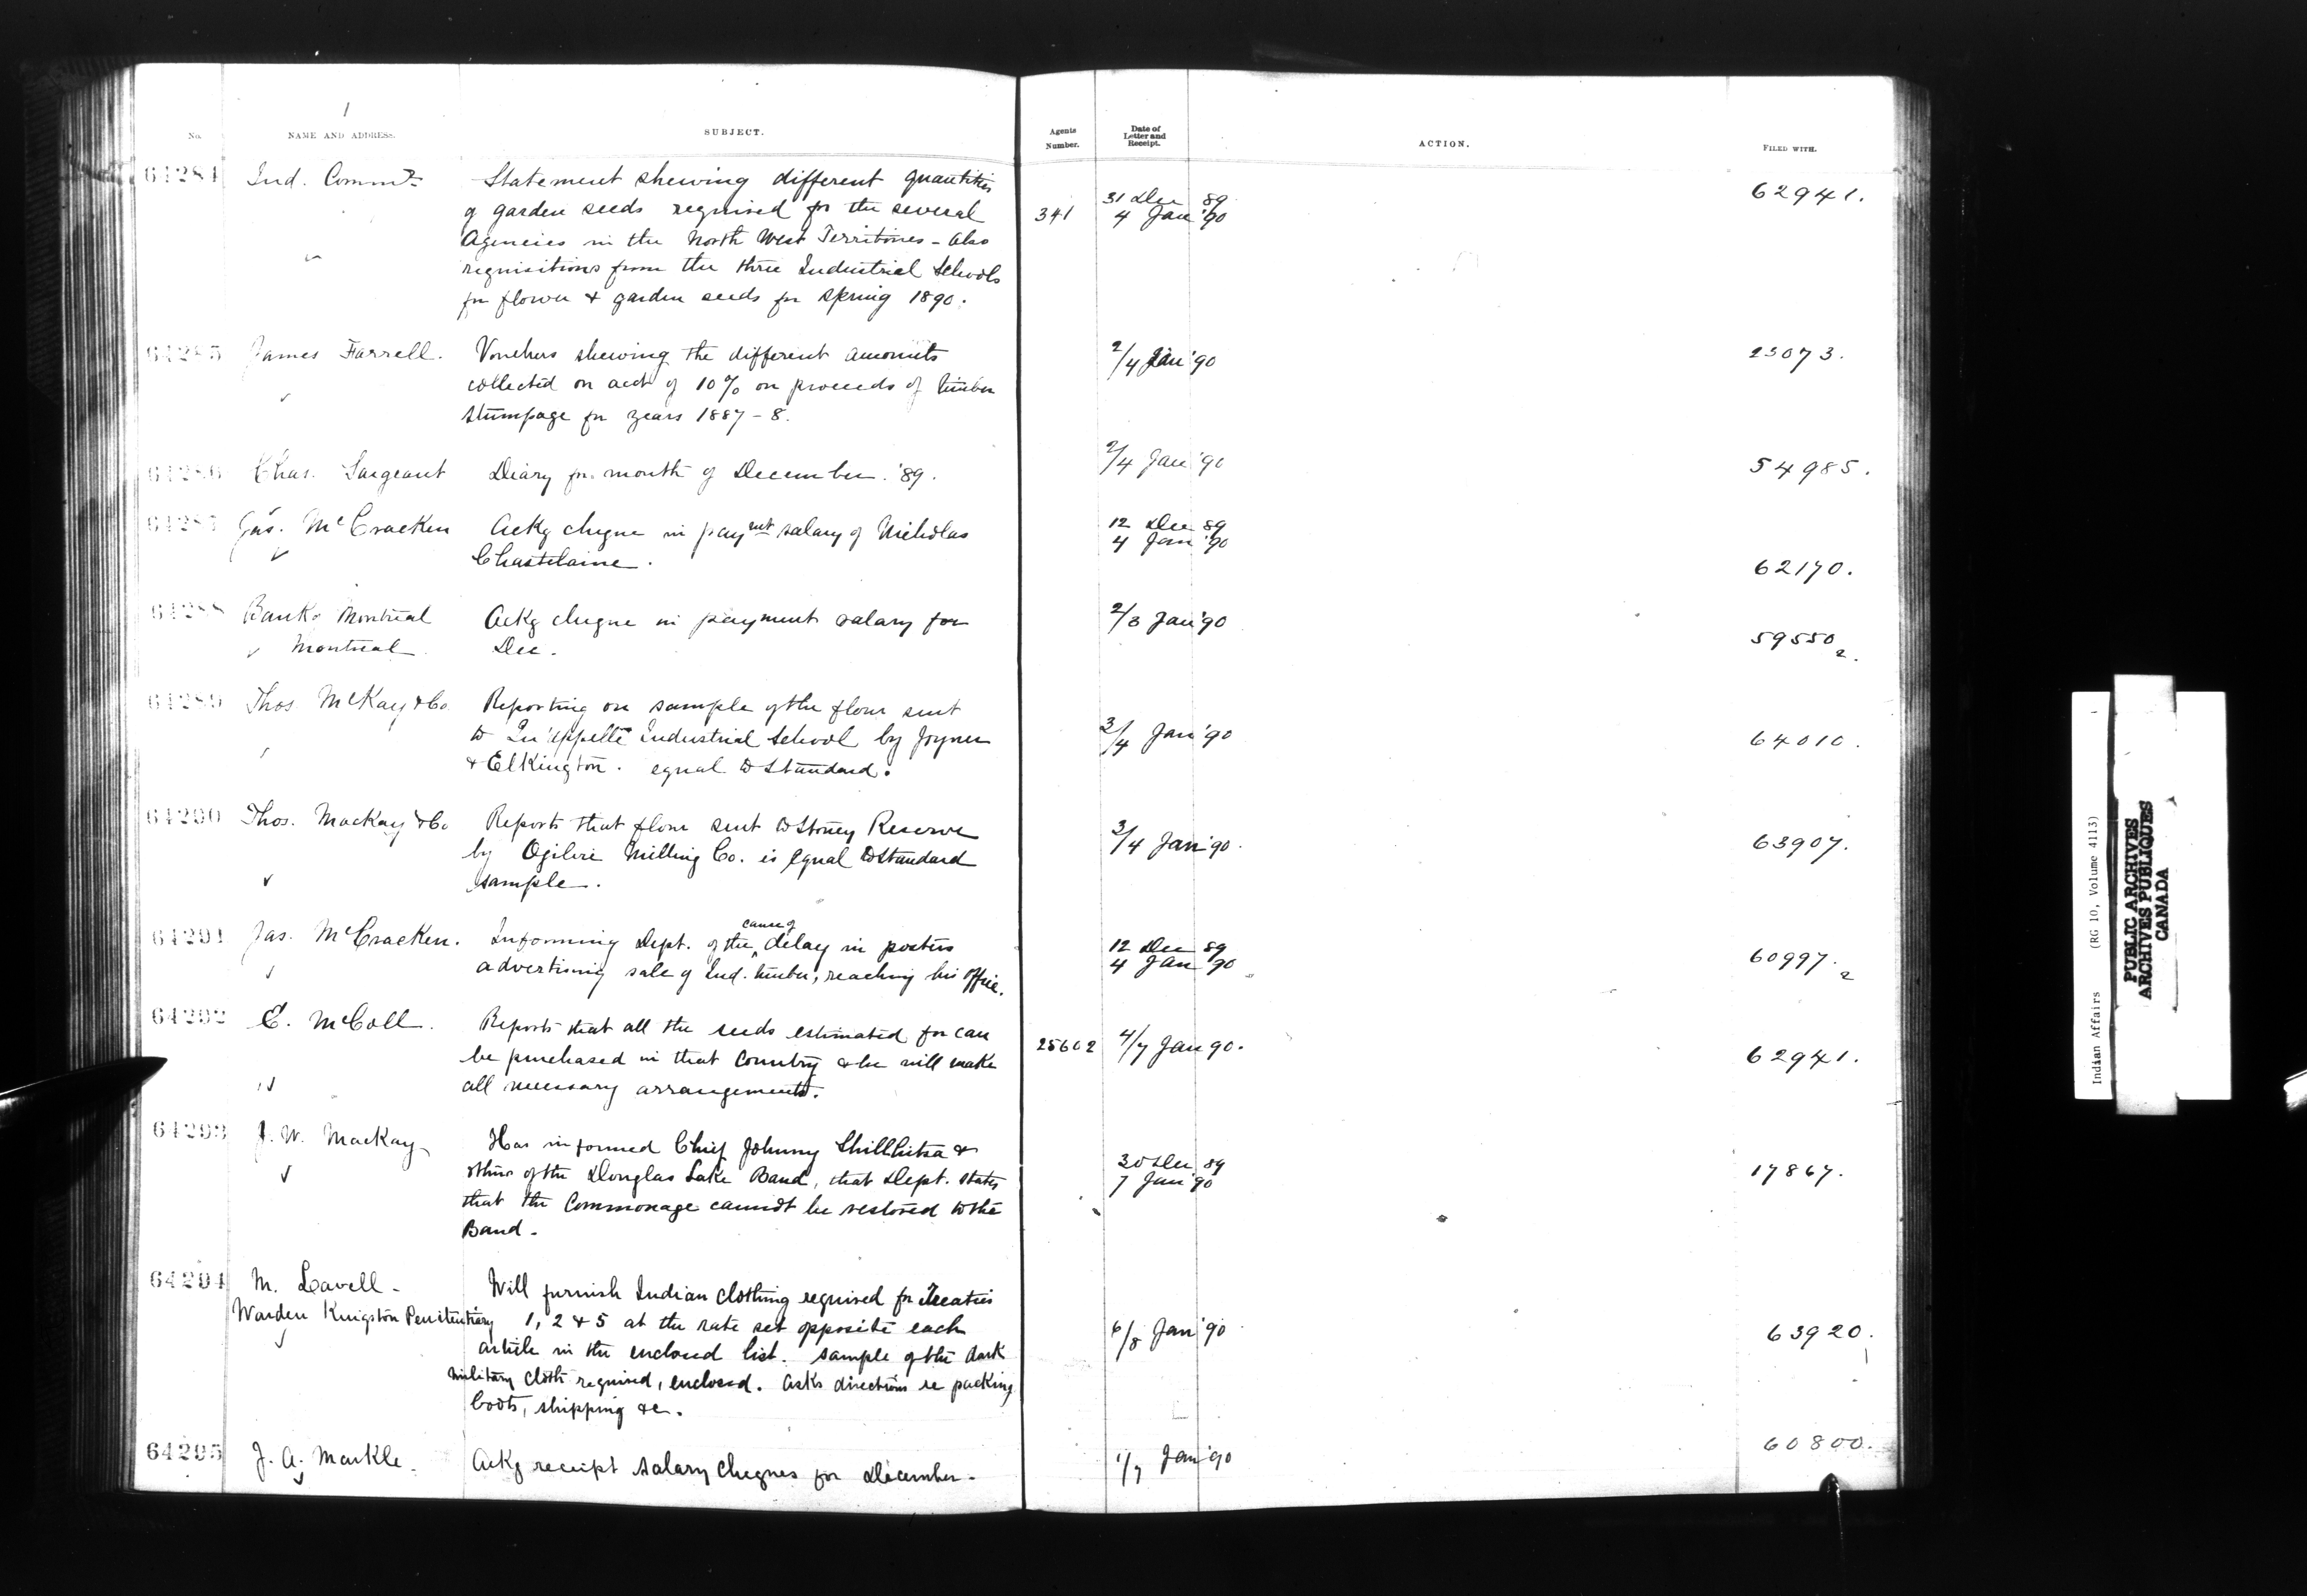 1
No. NAME AND ADDRESS. SUBJECT. Agents Number. Date of Letter and Receipt. ACTION. FILED WITH.
64284 Ind. Commr. Statement shewing different quantities
of garden seeds required for the several 341 31 Dec 89 4 Jan '90 62941.
Agencies in the North West Territories - Also
requisitions from the three Industrial Schools
for flower & garden seeds for Spring 1890.
64285 James Farrell. Vouchers shewing the different amounts 2/4 Jan '90 23073.
collected on acct of 10% on proceeds of timber
stumpage for years 1887-8.
64286 Chas. Sargeant Diary for month of December. '89. 2/4 Jan '90 54985.
64287 Jas. McCracken Ackg cheque in paymt salary of Nicholas 12 Dec 89 4 Jan '90
Chastelaine. 62170.
64288 Bank of Montreal Ackg cheque in payment salary for 2/3 Jan '90
Montreal Dec. 59550 2.
64289 Thos. McKay & Co. Reporting on sample of the flour sent
to Qu'Appelle Industrial School by Joyner 3/4 Jan '90 64010.
& Elkington. equal to Standard.
64290 Thos. MacKay & Co Reports that flour sent to Stoney Reserve 3/4 Jan '90. 63907.
by Ogilvie Milling Co. is equal to Standard
sample.
64291 Jas. McCracken. Informing Dept. of the cause of delay in posters 12 Dec 89 4 Jan '90 60997. 2
advertising sale of Ind. timber, reaching his office.
64292 E. McColl. Reports that all the seeds estimated for can 25602 4/7 Jan 90. 62941.
be purchased in that Country & he will make
all necessary arrangements.
64293 J. W. MacKay Has informed Chief Johnny Chillihitsa &
others of the Douglas Lake Band, that Dept. states 30 Dec 89 7 Jan '90 17867.
that the Commonage cannot be restored to the
Band.
64294 M. Lavell - Will furnish Indian clothing required for Treaties
Warden Kingston Penitentiary 1, 2 & 5 at the rate set opposite each 6/8 Jan '90 63920.
article in the enclosed list. Sample of the dark
military cloth required, enclosed. Asks directions re packing
boots, shipping &c.
64295 J. A. Markle. Ackg receipt salary cheques for December. 1/7 Jan '90 60800.
Indian Affairs (RG 10, Volume 4113)
PUBLIC ARCHIVES
ARCHIVES PUBLIQUES
CANADA